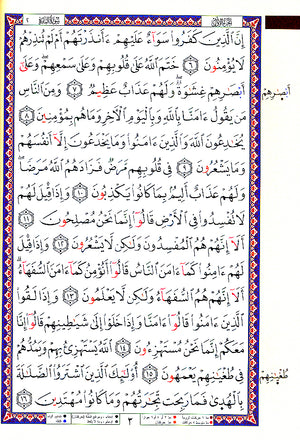 إِنَّ ٱلَّذِينَ كَفَرُوا۟ سَوَآءٌ عَلَيْهِمْ ءَأَنذَرْتَهُمْ أَمْ لَمْ تُنذِرْهُمْ
لَا يُؤْمِنُونَ ٦ خَتَمَ ٱللَّهُ عَلَىٰ قُلُوبِهِمْ وَعَلَىٰ سَمْعِهِمْ ۖ وَعَلَىٰٓ
أَبْصَٰرِهِمْ غِشَٰوَةٌ ۖ وَلَهُمْ عَذَابٌ عَظِيمٌ ٧ وَمِنَ ٱلنَّاسِ
مَن يَقُولُ ءَامَنَّا بِٱللَّهِ وَبِٱلْيَوْمِ ٱلْـَٔاخِرِ وَمَا هُم بِمُؤْمِنِينَ ٨
يُخَٰدِعُونَ ٱللَّهَ وَٱلَّذِينَ ءَامَنُوا۟ وَمَا يَخْدَعُونَ إِلَّآ أَنفُسَهُمْ
وَمَا يَشْعُرُونَ ٩ فِى قُلُوبِهِم مَّرَضٌ فَزَادَهُمُ ٱللَّهُ مَرَضًا ۖ
وَلَهُمْ عَذَابٌ أَلِيمٌۢ بِمَا كَانُوا۟ يَكْذِبُونَ ١٠ وَإِذَا قِيلَ لَهُمْ
لَا تُفْسِدُوا۟ فِى ٱلْأَرْضِ قَالُوٓا۟ إِنَّمَا نَحْنُ مُصْلِحُونَ ١١
أَلَآ إِنَّهُمْ هُمُ ٱلْمُفْسِدُونَ وَلَٰكِن لَّا يَشْعُرُونَ ١٢ وَإِذَا قِيلَ
لَهُمْ ءَامِنُوا۟ كَمَآ ءَامَنَ ٱلنَّاسُ قَالُوٓا۟ أَنُؤْمِنُ كَمَآ ءَامَنَ ٱلسُّفَهَآءُ ۗ
أَلَآ إِنَّهُمْ هُمُ ٱلسُّفَهَآءُ وَلَٰكِن لَّا يَعْلَمُونَ ١٣ وَإِذَا لَقُوا۟
ٱلَّذِينَ ءَامَنُوا۟ قَالُوٓا۟ ءَامَنَّا وَإِذَا خَلَوْا۟ إِلَىٰ شَيَٰطِينِهِمْ قَالُوٓا۟ إِنَّا
مَعَكُمْ إِنَّمَا نَحْنُ مُسْتَهْزِءُونَ ١٤ ٱللَّهُ يَسْتَهْزِئُ بِهِمْ وَيَمُدُّهُمْ
فِى طُغْيَٰنِهِمْ يَعْمَهُونَ ١٥ أُو۟لَٰٓئِكَ ٱلَّذِينَ ٱشْتَرَوُا۟ ٱلضَّلَٰلَةَ
بِٱلْهُدَىٰ فَمَا رَبِحَت تِّجَٰرَتُهُمْ وَمَا كَانُوا۟ مُهْتَدِينَ ١٦
أَبْصَٰرِهِمْ
طُغْيَٰنِهِمْ
٣